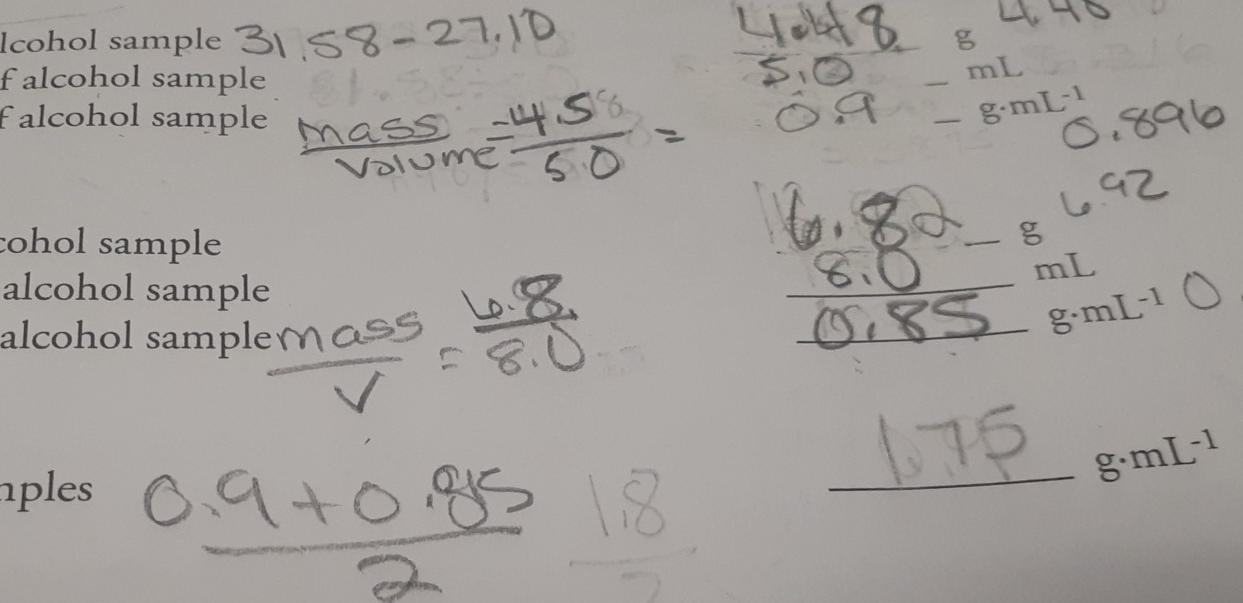 lcohol sample 31.58-27.10 4.48 g 4.48
f alcohol sample 5.0 mL
f alcohol sample mass/volume = 4.5/5.0 = 0.9 g·mL-1 0.896
cohol sample 6.82 g 6.92
alcohol sample 8.0 mL
alcohol sample mass/V = 6.8/8.0 0.85 g·mL-1 0
nples 0.9+0.85/2 1.8 1.75 g·mL-1